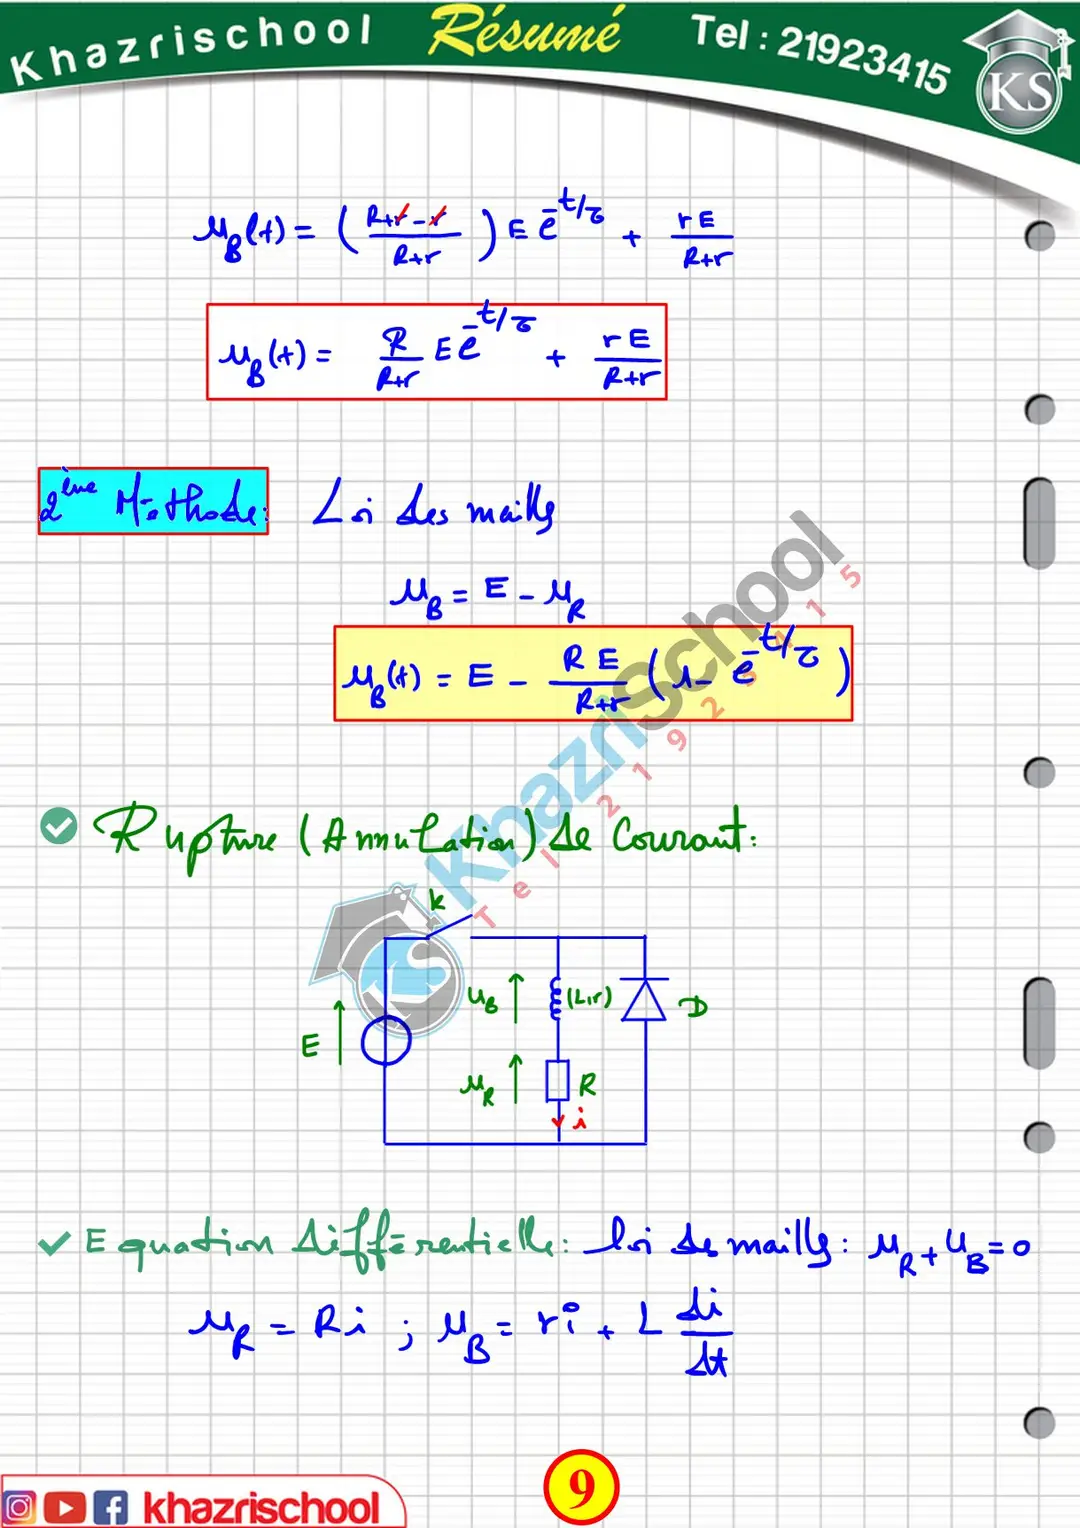 Khazrischool Résumé Tel : 21923415
KS
u_B(t) = ( (R+r-r)/(R+r) ) E e^(-t/τ) + rE/(R+r)
u_B(t) = R/(R+r) E e^(-t/τ) + rE/(R+r)
2ème Méthode: Loi des mailles
u_B = E - u_R
u_B(t) = E - RE/(R+r) (1 - e^(-t/τ))
KhazriSchool
Tel 21923415
Rupture (Annulation) de courant:
k
KS
u_B (L,r) D
E
u_R R
i
Equation différentielle: loi des mailles: u_R + u_B = 0
u_R = Ri ; u_B = ri + L di/dt
9
khazrischool